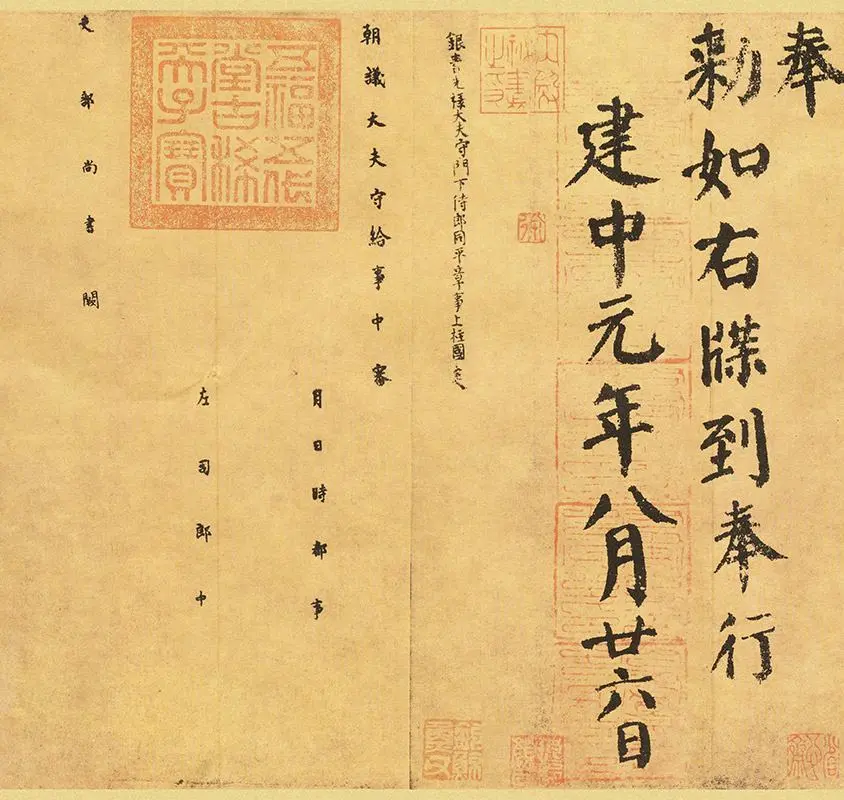 奉
勑如右牒到奉行
建中元年八月廿六日
銀青光祿大夫守門下侍郎同平章事上柱國炎
朝議大夫守給事中審
月日時都事
五福五代堂古稀天子寶
左司郎中
吏部尚書闕